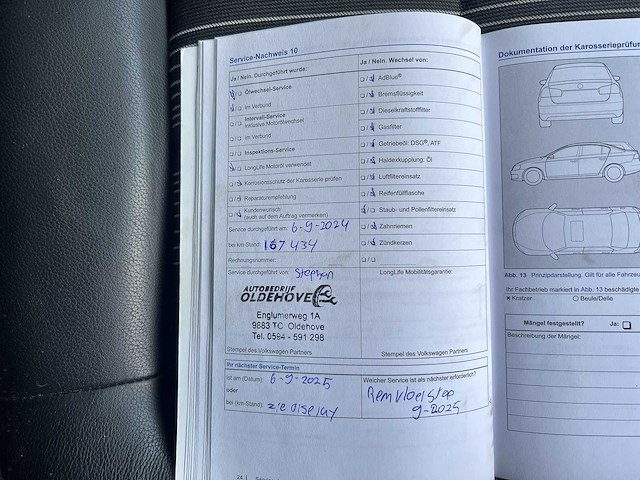 Service-Nachweis 10
Ja / Nein. Durchgeführt wurde:
Ölwechsel-Service
im Verbund
Intervall-Service
inklusive Motorölwechsel
im Verbund
Inspektions-Service
LongLife Motoröl verwendet
Korrosionsschutz der Karosserie prüfen
Reparaturempfehlung
Kundenwunsch
(auch auf dem Auftrag vermerken)
Service durchgeführt am: 6-9-2024
bei km-Stand: 167434
Rechnungsnummer:
Service durchgeführt von: Stephan
AUTOBEDRIJF
OLDEHOVE
Englumerweg 1A
9883 TC Oldehove
Tel. 0594 - 591 298
Stempel des Volkswagen Partners
Ja / Nein. Wechsel von:
AdBlue®
Bremsflüssigkeit
Dieselkraftstofffilter
Gasfilter
Getriebeöl: DSG®, ATF
Haldexkupplung: Öl
Luftfiltereinsatz
Reifenfüllflasche
Staub- und Pollenfiltereinsatz
Zahnriemen
Zündkerzen
LongLife Mobilitätsgarantie:
Stempel des Volkswagen Partners
Ihr nächster Service-Termin
ist am (Datum): 6-9-2025
oder
bei (km-Stand): zie display
Welcher Service ist als nächster erforderlich?
Remvloeistof
9-2025
24
Dokumentation der Karosserieprüfun
Abb. 13 Prinzipdarstellung. Gilt für alle Fahrzeu
Ihr Fachbetrieb markiert in Abb. 13 beschädigte
× Kratzer ○ Beule/Delle
Mängel festgestellt? Ja:
Beschreibung der Mängel: